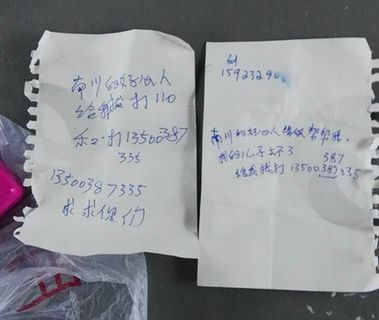 南川的好心人
给我拨打110
和打13500387
335
13500387335
求求你们
15923290
南川的好心人请你帮帮我.
我的儿子出不了
387
给我拨打13500387335